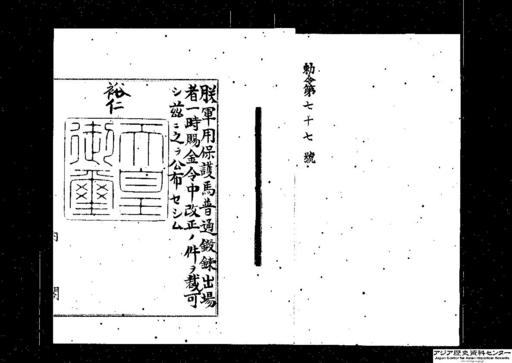 勅令第七十七號
朕軍用保護馬普通鍛錬出場
者一時賜金令中改正ノ件ヲ裁可
シ茲ニ之ヲ公布セシム
裕仁
天皇
御璽
内
閣
アジア歴史資料センター
Japan Center for Asian Historical Records